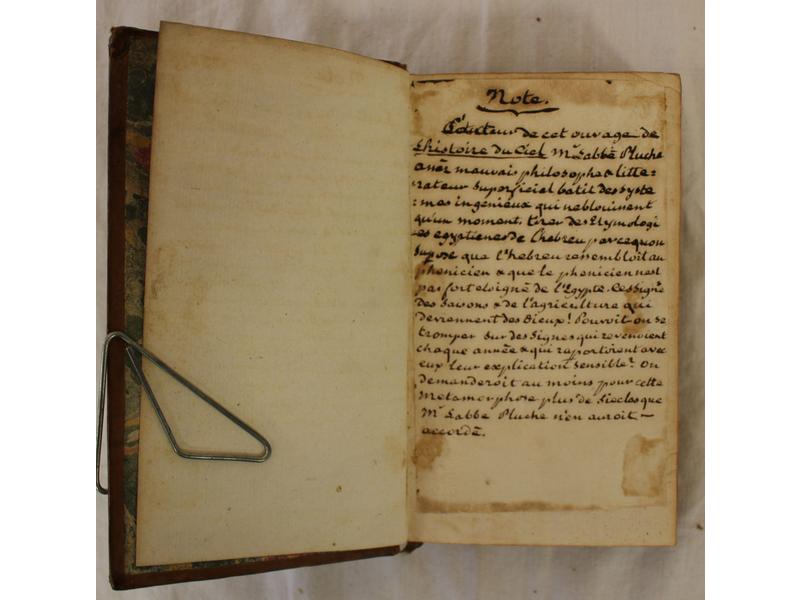 Note.
de cet ouvrage de
L'histoire du Ciel Mr Labbé Pluche
asséz mauvais philosophe & litte:
:rateur superficiel bâtit des syste
:mes ingenieux qui n'eblouissent
qu'un moment. tirer des Etymologi
es egyptienes de l'hebreu parcequ'on
supose que l'hebreu ressembloit au
phenicien & que le phenicien n'est
pas fort eloigné de l'Egypte. Ces signes
des saisons & de l'agriculture qui
deviennent des Dieux! Pouvoit on se
tromper sur des signes qui revenoient
chaque année & qui raportoient avec
eux leur explication sensible? On
demanderoit au moins pour cette
Metamorphose plus de siecles que
Mr Labbé Pluche n'en auroit —
accordé.